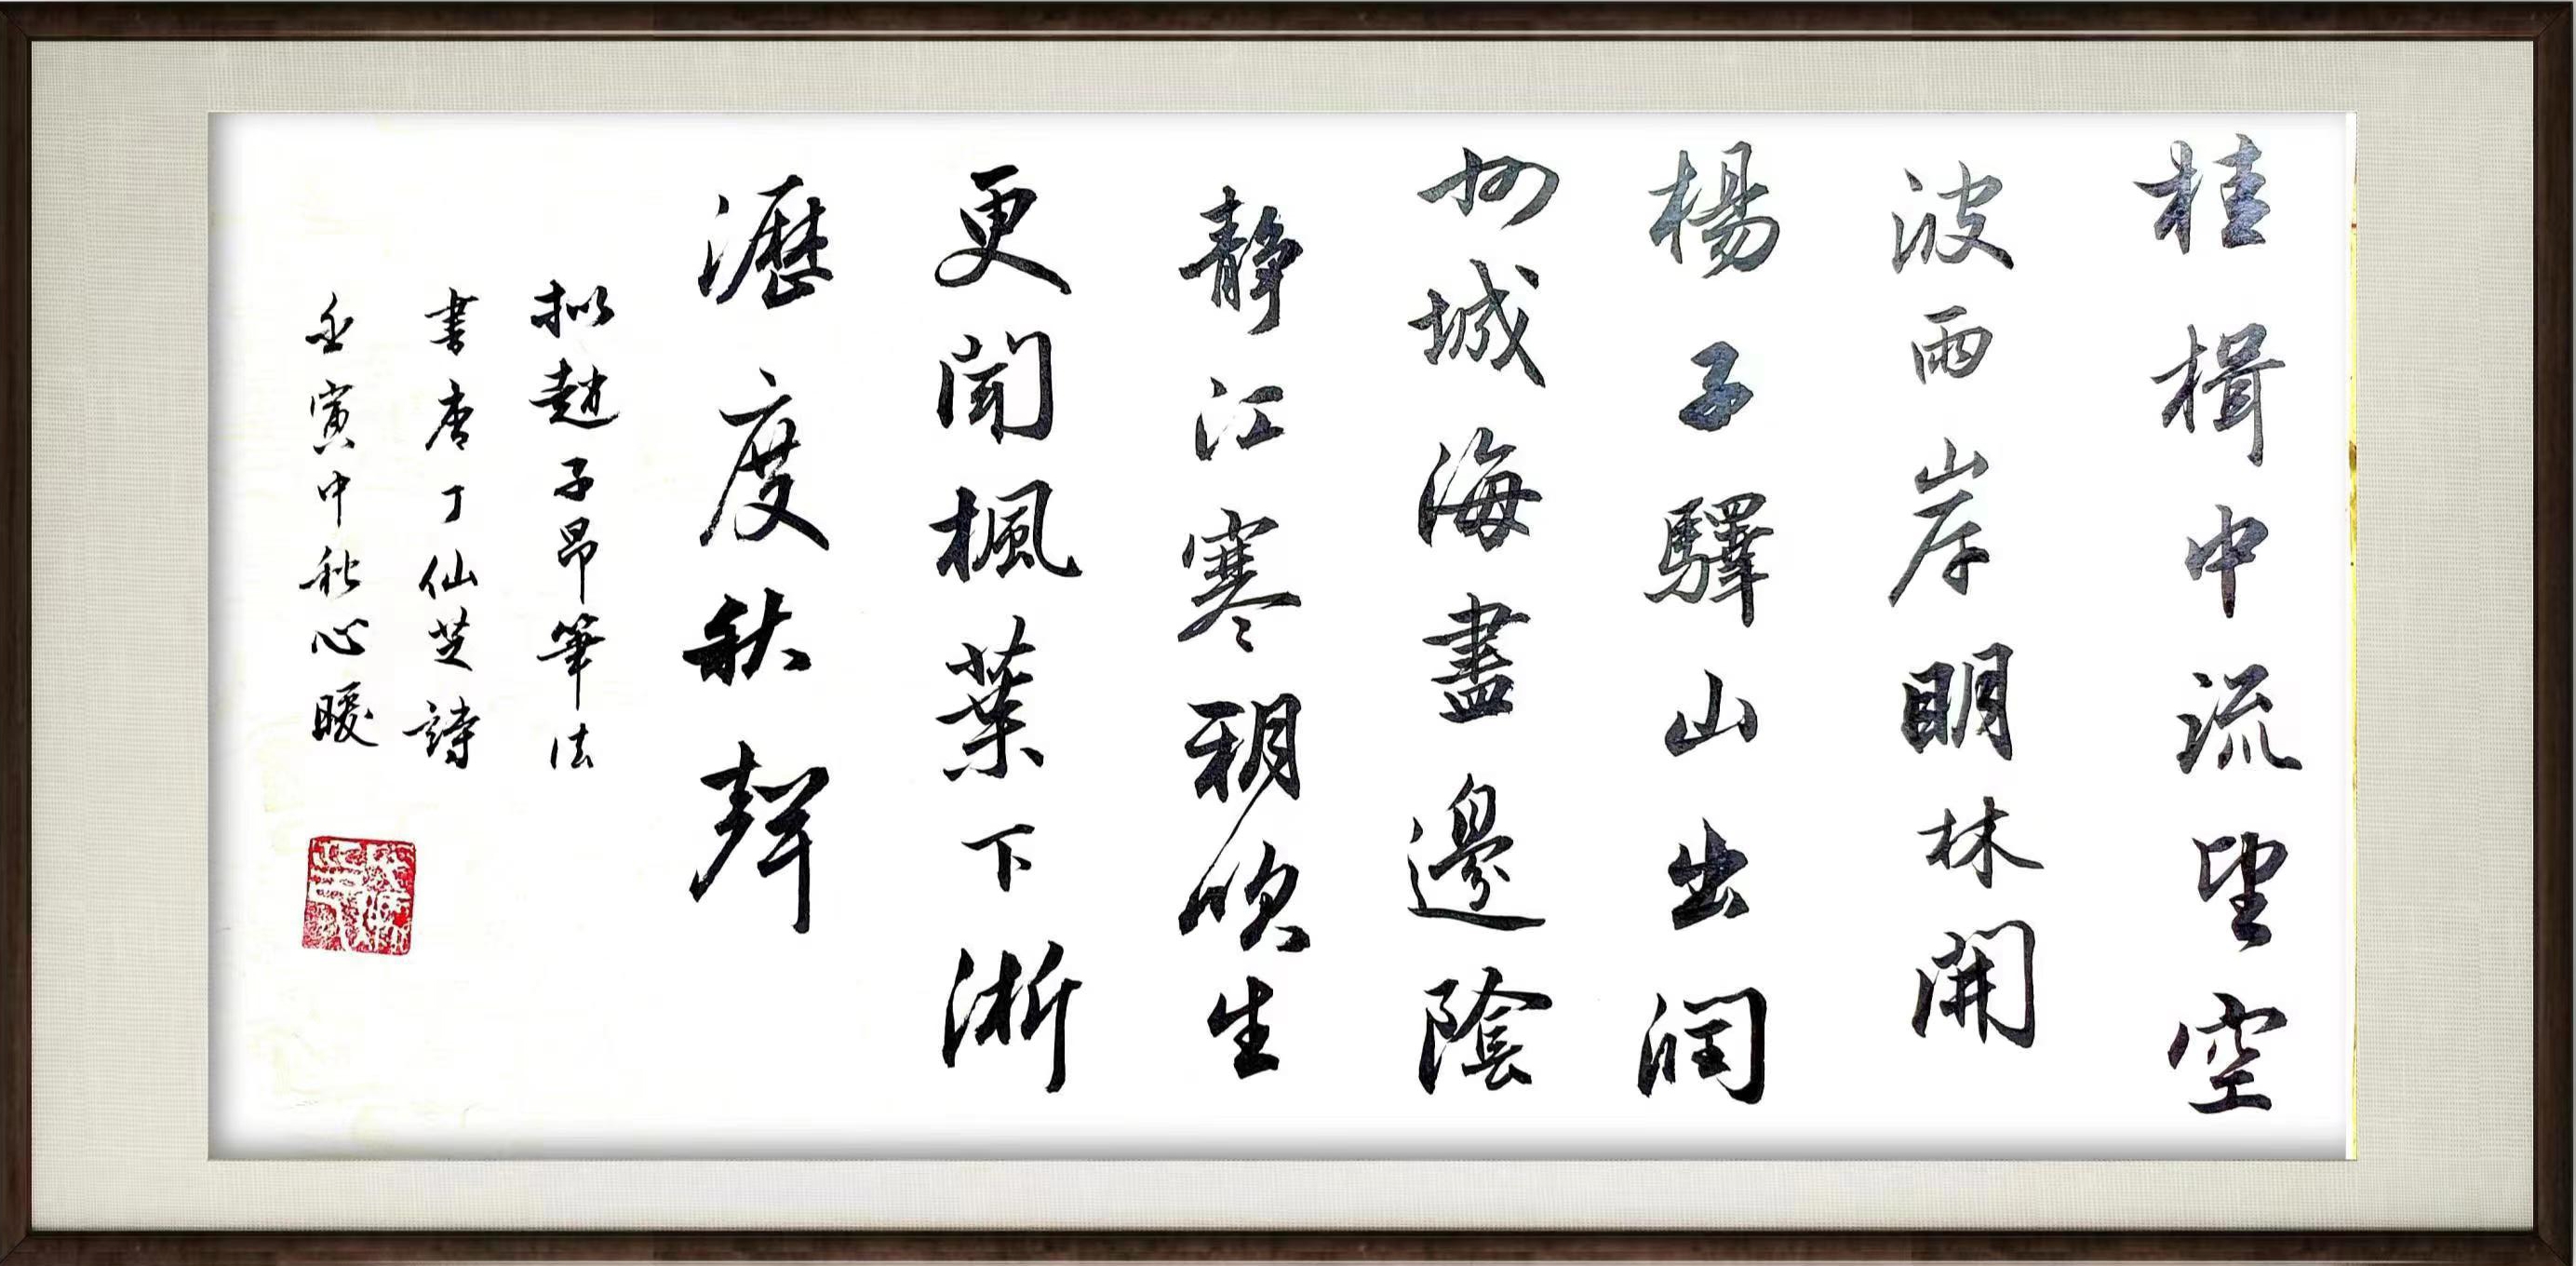 桂楫中流望空
波兩岸明林開
楊子驛山出潤
州城海盡邊陰
靜江寒朔吹生
更聞楓葉下淅
瀝度秋聲
拟趙子昂筆法
書唐丁仙芝詩
壬寅中秋心暖